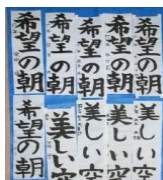 希望の朝
希望の朝
希望の朝
希望の朝
希望の朝
希望の朝
美しい空
美しい空
美しい空
美しい空